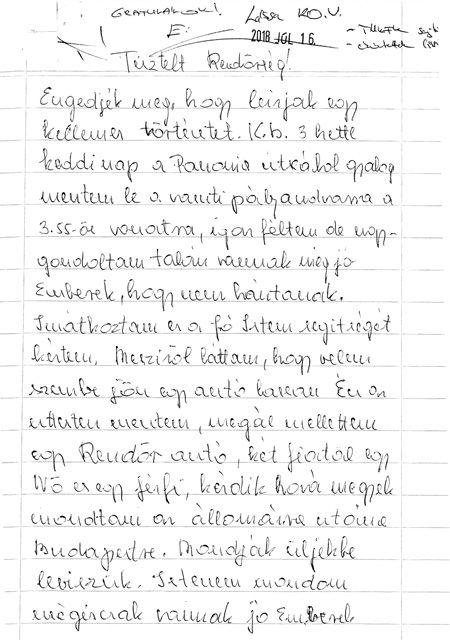 GRATULÁLOK!
E:
2018 JÚL 16.
Tisztelt Rendőrség!
Engedjék meg, hogy leirjak egy
kellemes történtet. K.b. 3 hette
keddi nap a Panonia utzából gyalog
mentem le a vasuti pályaudvarra a
3.55-ös vonatra, igen féltem de ugy
gondoltam talán vannak még jó
Emberek, hogy nem bántanak.
Imátkoztam es a jó Istem segitségét
kértem. Meszirőł láttam, hogy velem
szembe jön egy autó lassan Én az
uttesten mentem, megál mellettem
egy Rendőr autó, két fiatal egy
Nő es egy férfi, kérdik hová megyek
mondtam az állomásra utánna
Budapestre. Mondják üljekbe
leviszük. Istenem mondom
mégiscsak vannak jo Emberek